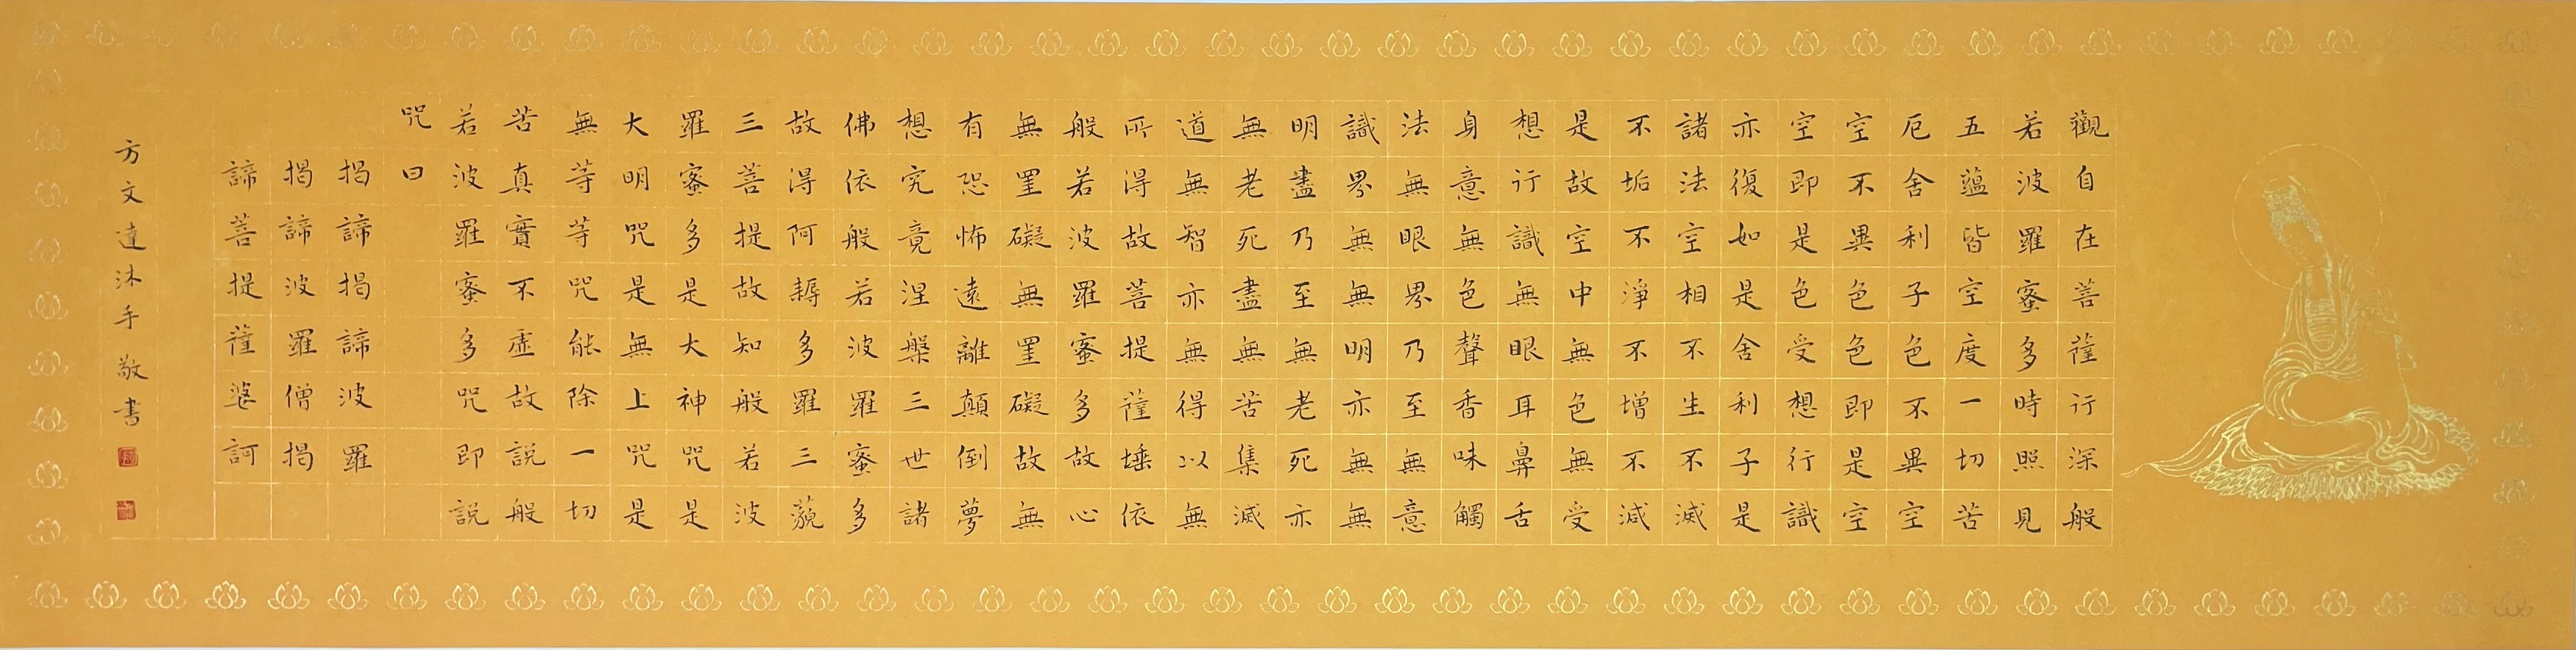 觀自在菩薩行深般
若波羅蜜多時照見
五蘊皆空度一切苦
厄舍利子色不異空
空不異色色即是空
空即是色受想行識
亦復如是舍利子是
諸法空相不生不滅
不垢不淨不增不減
是故空中無色無受
想行識無眼耳鼻舌
身意無色聲香味觸
法無眼界乃至無意
識界無無明亦無無
明盡乃至無老死亦
無老死盡無苦集滅
道無智亦無得以無
所得故菩提薩埵依
般若波羅蜜多故心
無罣礙無罣礙故無
有恐怖遠離顛倒夢
想究竟涅槃三世諸
佛依般若波羅蜜多
故得阿耨多羅三藐
三菩提故知般若波
羅蜜多是大神咒是
大明咒是無上咒是
無等等咒能除一切
苦真實不虛故說般
若波羅蜜多咒即說
咒曰
揭諦揭諦波羅
揭諦波羅僧揭
諦菩提薩婆訶
方文達沐手敬書